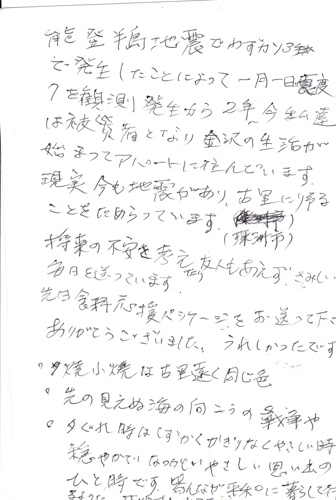 能登半島地震でわずか3年
で発生したことによって一月一日震度
7を観測 発生から2年 今私達
は被災者となり 金沢の生活が
始まってアパートに住んでいます
現実 今も地震があり、古里に帰る
ことをためらっています。
(珠洲市)
将来の不安を考え 友人もあえず さみしい
毎日を送っています
先日食料応援パッケージをお送って下さ
ありがとうございました。 うれしかったです
夕焼小焼は古里遠く同じ色
先の見えぬ海の向こうの戦争や
夕ぐれ時はしずかくかぎりなくやさしい時
穏やかでなつかしいやさしい思い出の
ひと時です